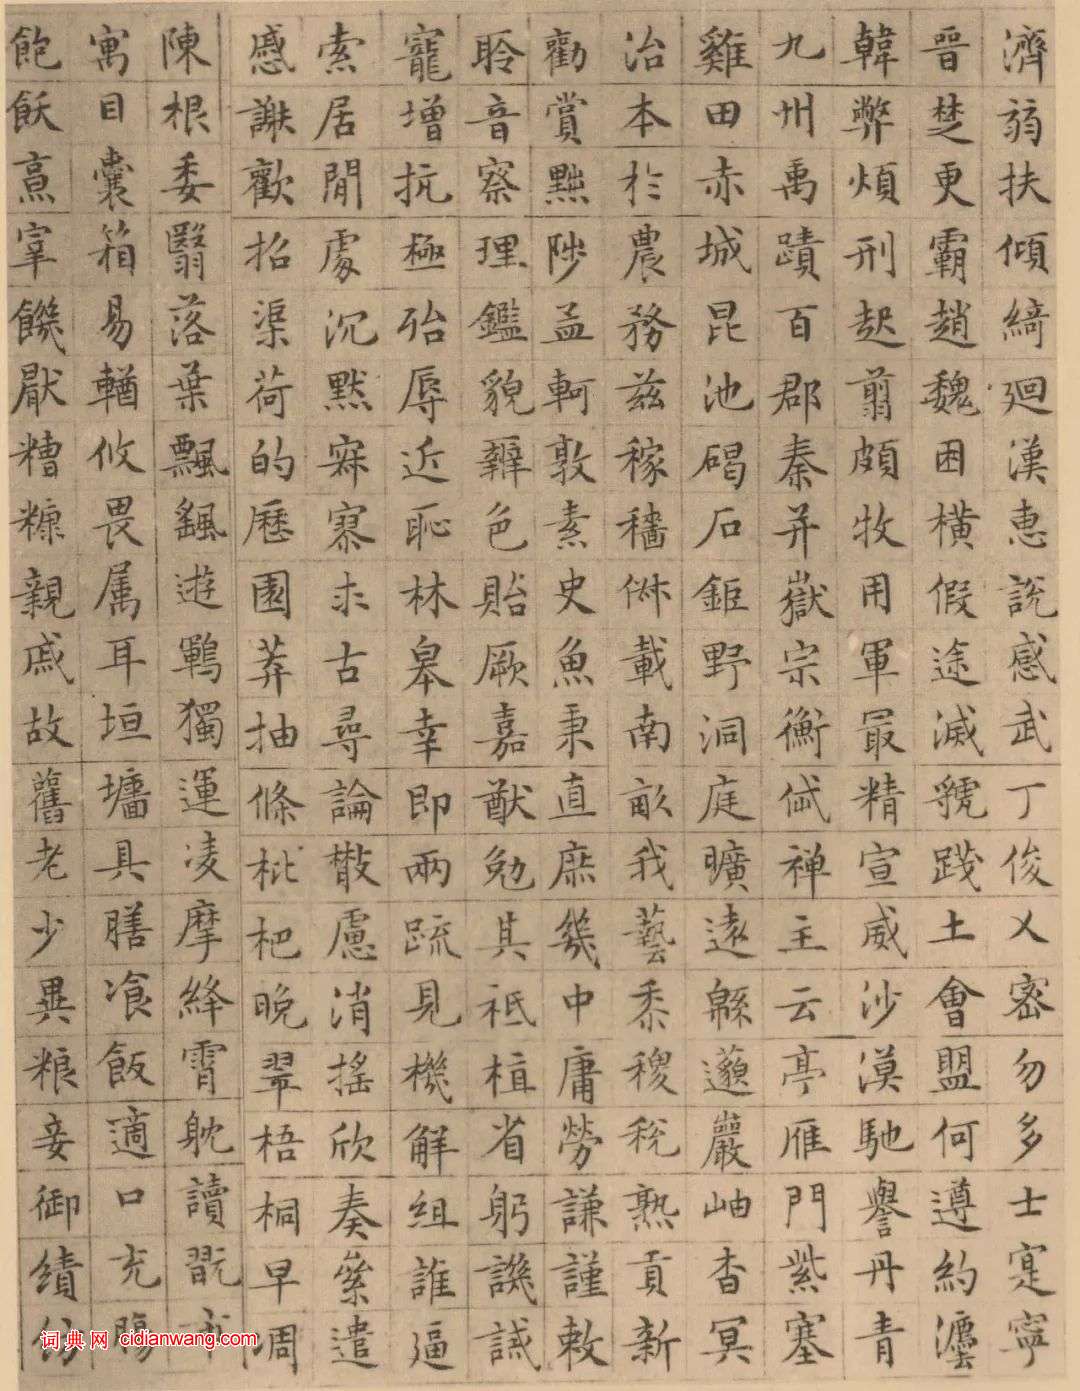 濟弱扶傾綺迴漢惠説感武丁俊乂密勿多士寔寧
晉楚更霸趙魏困橫假途滅虢踐土會盟何遵約灋
韓弊煩刑起翦頗牧用軍最精宣威沙漠馳譽丹青
九州禹蹟百郡秦并嶽宗衡岱禅主云亭雁門紫塞
雞田赤城昆池碣石鉅野洞庭曠遠緜邈巖岫杳冥
治本於農務茲稼穡俶載南畝我藝黍稷稅熟貢新
勸賞黜陟孟軻敦素史魚秉直庶幾中庸勞謙謹敕
聆音察理鑑貌辨色貽厥嘉猷勉其祗植省躬譏誡
寵增抗極殆辱近恥林皋幸即兩疏見機解組誰逼
索居閒處沉默寂寥求古尋論散慮消搖欣奏絫遣
慼謝歡招渠荷的歷園莽抽條枇杷晚翠梧桐早凋
陳根委翳落葉飄颻遊鵾獨運凌摩絳霄躭讀翫市
寓目囊箱易輶攸畏属耳垣墻具膳飡飯適口充腸
飽飫烹宰饑厭糟糠親戚故舊老少異粮妾御績紡
词典网 cidianwang.com